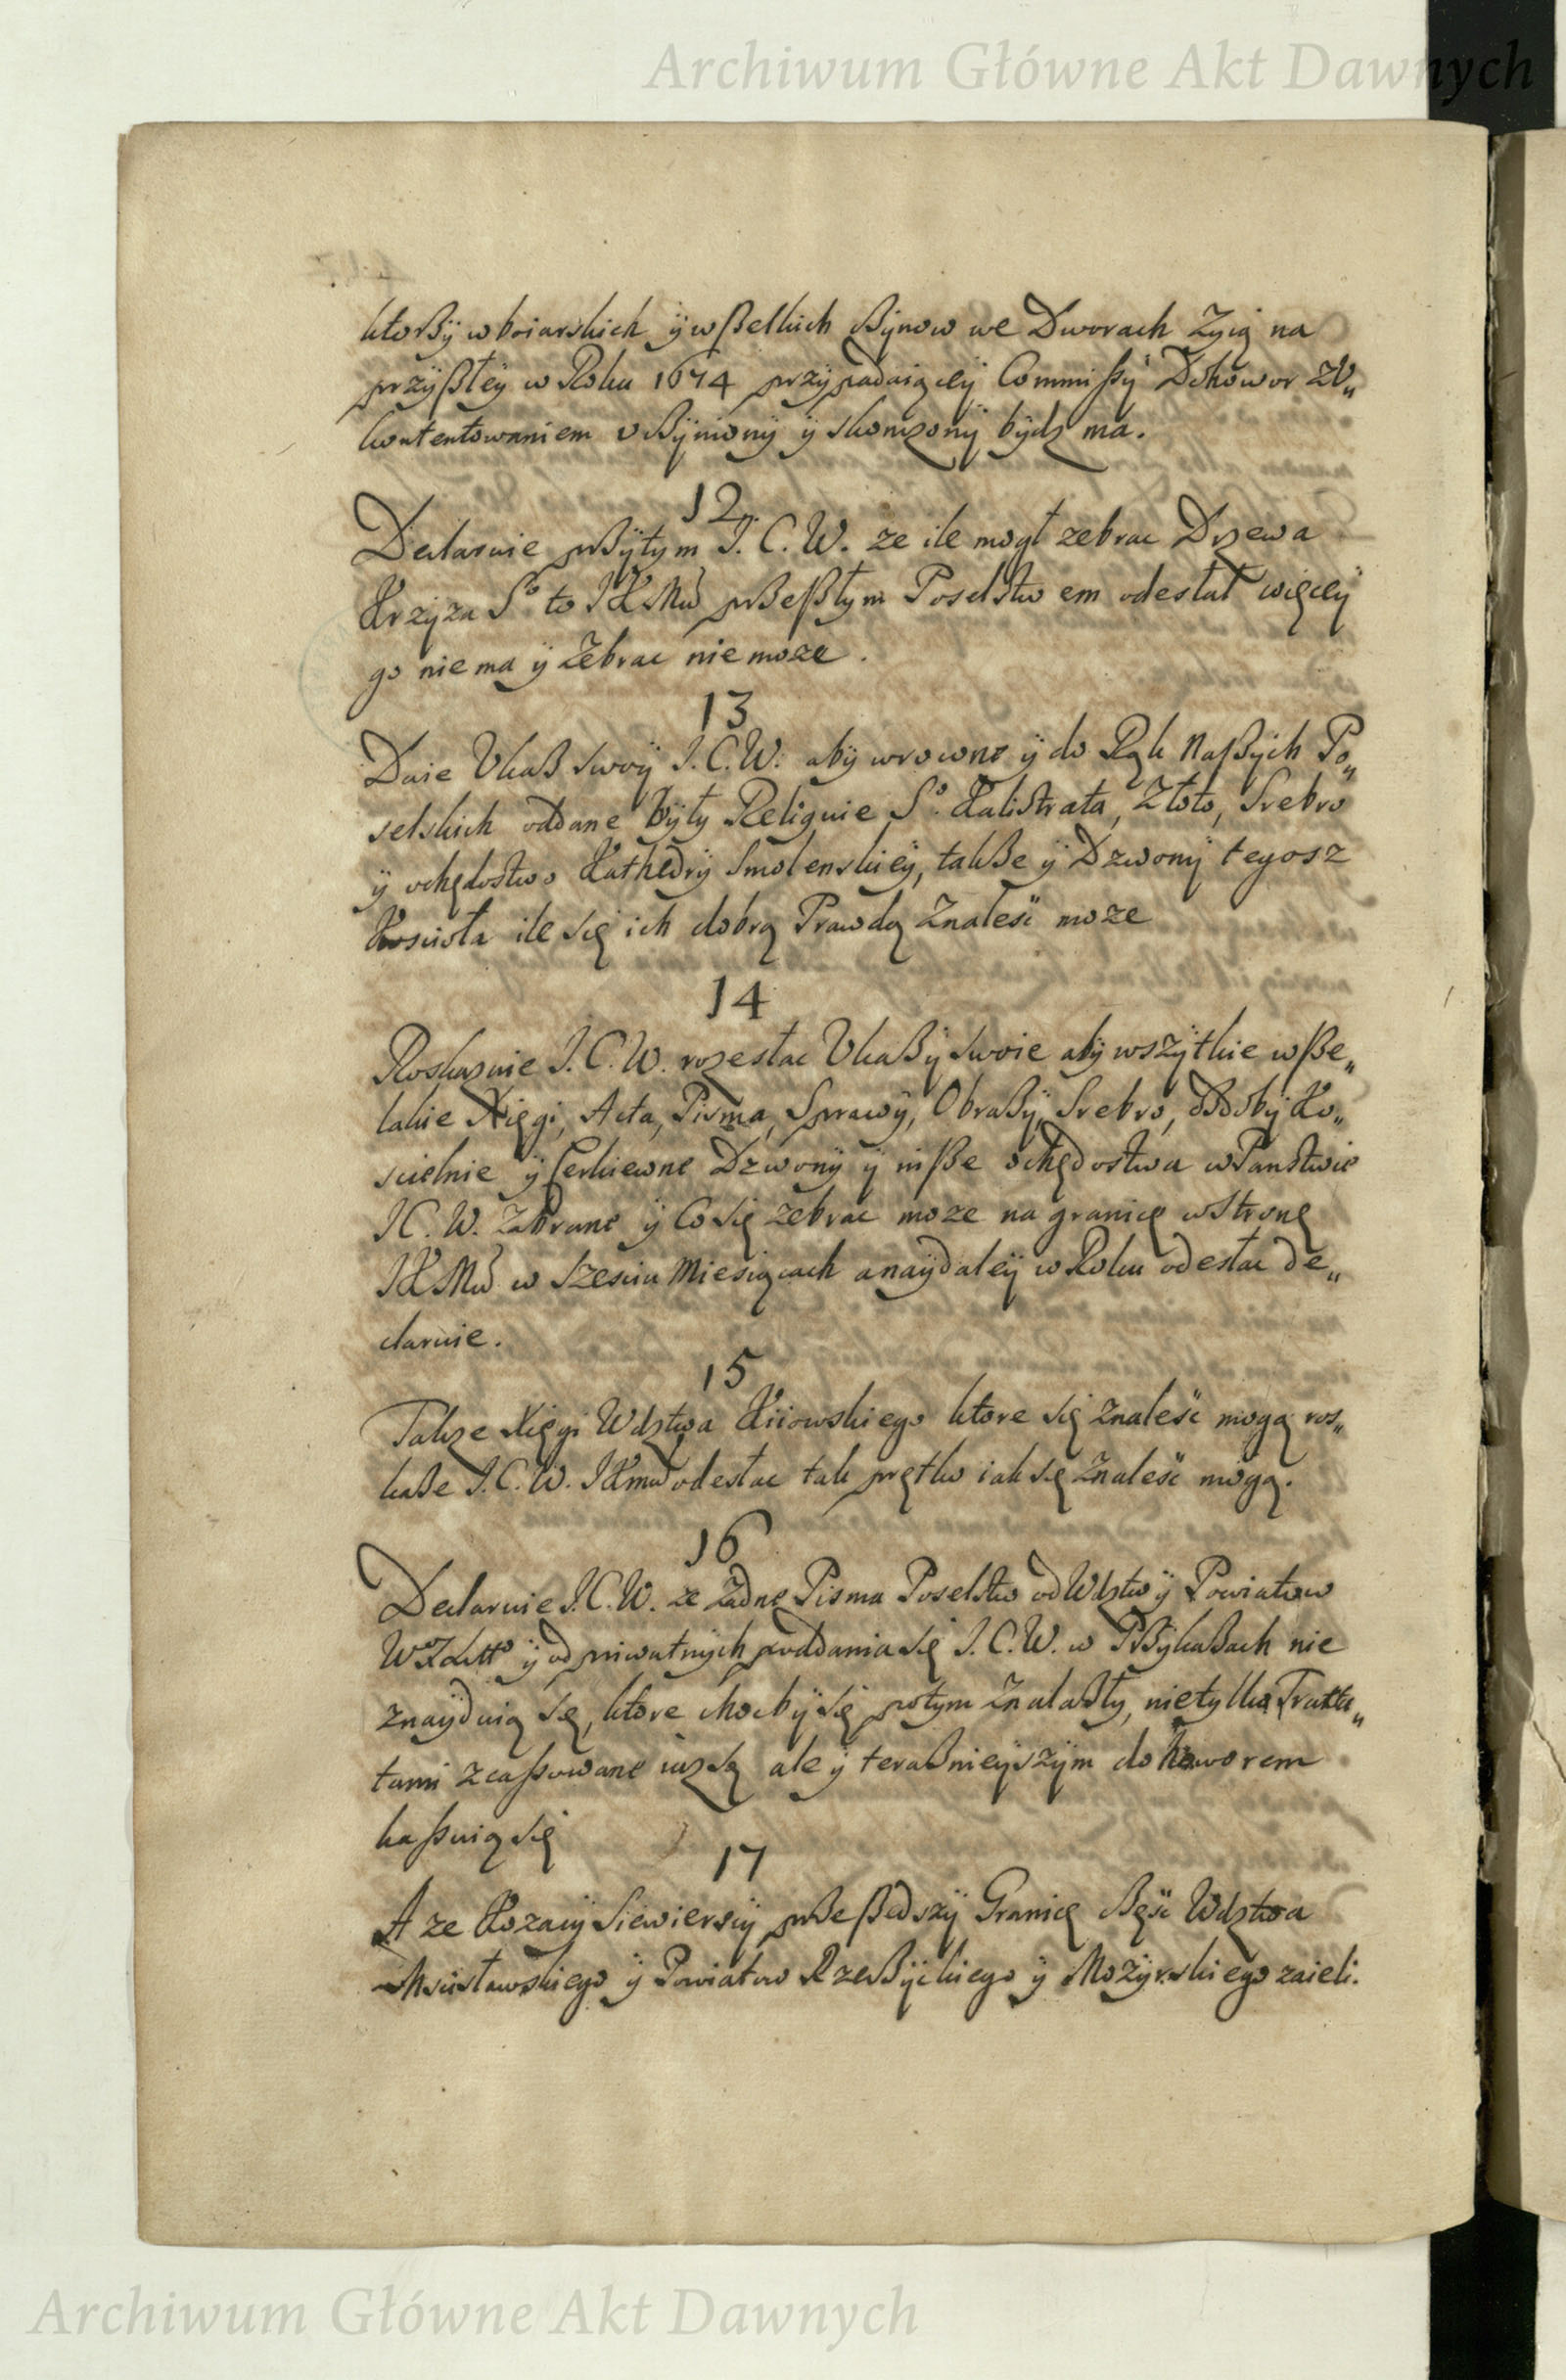 Archiwum Główne Akt Dawnych
ktorßy w boiarskich ÿ wßelkich ßÿnow we Dworach Zyią na
przÿßłeÿ w Roku 1674 przÿpadaiąceÿ Commissÿ Dohowor zU„
kontentowaniem vßÿnionÿ ÿ skonczonÿ bÿdz ma.
12
Declaruie pßÿtym J. C. W. ze ile mogł zebrac Drzewa
Krzÿza S° to JKMci pßeßłym Poselstwem odesłał więceÿ
go nie ma ÿ Zebrac nie moze.
13
Daie Ukaß swoÿ J. C. W. abÿ wrowno ÿ do Rąk Naßÿch Po„
selskich oddane bÿłÿ Reliquie S°. Kalistrata, Złoto, Srebro
ÿ ochędostwo Kathedrÿ Smolenskieÿ, takße ÿ Dzwonÿ tegosz
Koscioła ile się ich dobrą Prawdą Znaleść moze
14
Roskazuie J. C. W. rozesłac Ukaßÿ swoie abÿ wszÿtkie wße„
lakie Xięgi, Acta, Pisma, Sprawÿ, Obraßÿ, Srebro, Osdobÿ Ko„
scielnie ÿ Cerkiewne Dzwonÿ ÿ inße ochędostwa w Panstwie
J C. W. Zabrane ÿ Co się zebrac moze na granicę w Stronę
JKMci w Szesciu Miesiącach a naÿdaleÿ w Roku odesłac de„
claruie.
15
Takze Xięgi Wdztwa Kiiowskiego ktore się Znaleść mogą ros„
kaße J. C. W. JKmci odesłac tak prętko iak się Znaleść mogą.
16
Declaruie J. C. W. ze Zadne Pisma Poselstw od Wdztw ÿ Powiatow
WXLitt° ÿ od priwatnÿch poddania się J. C. W. w Pßÿkaßach nie
znaÿduią się, ktore chocbÿ się potym Znalaßłÿ, nietylko Trakta„
tami zcassowane iuz są ale ÿ teraßnieÿszÿm dohoworem
kassuią się
17
A ze Kozacÿ Siewierscÿ pßeßedszÿ Granicę ßęść Wdztwa
Mscisławskiego ÿ Powiatow Rzeßÿckiego ÿ Mozÿrskiego zaieli.
Archiwum Główne Akt Dawnych